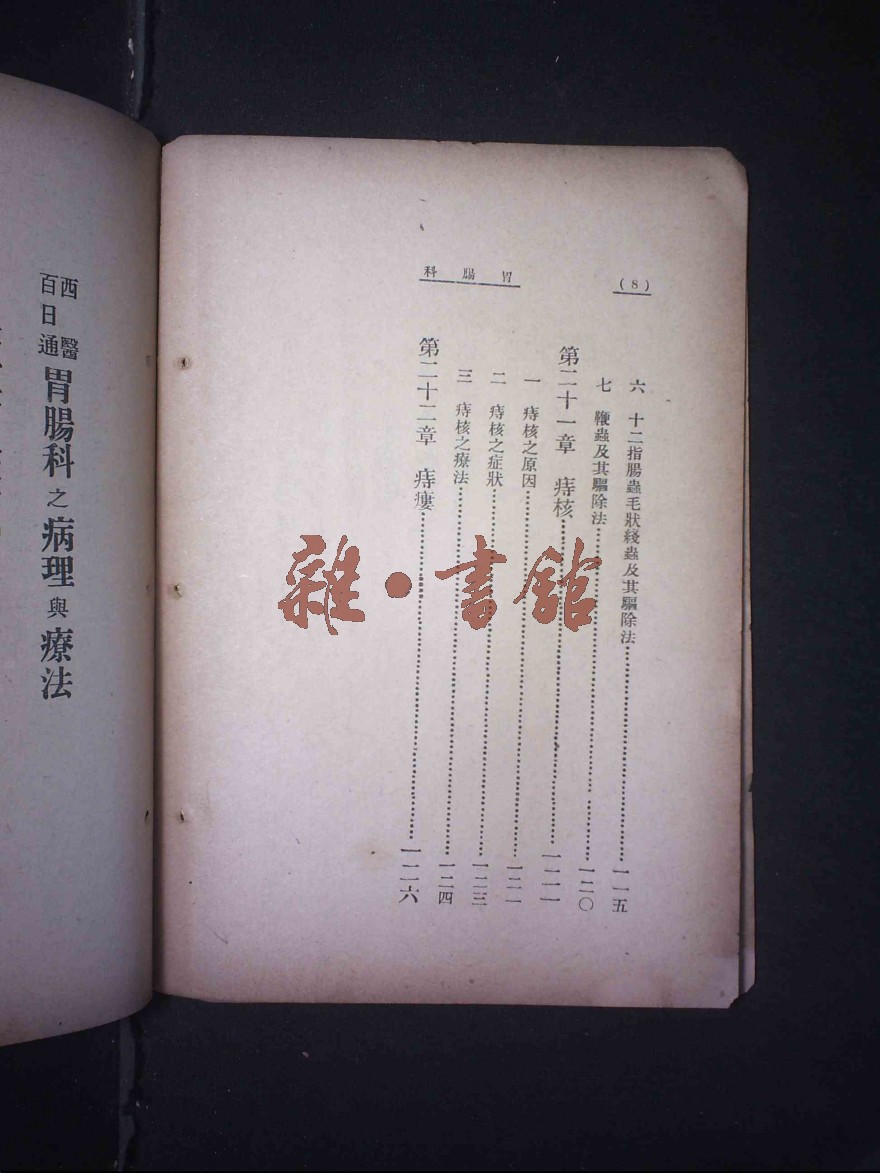 (8)
胃腸科
六 十二指腸蟲毛狀綫蟲及其驅除法……………一一五
七 鞭蟲及其驅除法……………一二〇
第二十一章 痔核……………一二一
一 痔核之原因……………一二一
二 痔核之症狀……………一二三
三 痔核之療法……………一二四
第二十二章 痔瘻……………一二六
西醫
百日通
胃腸科之病理與療法
雜·書館